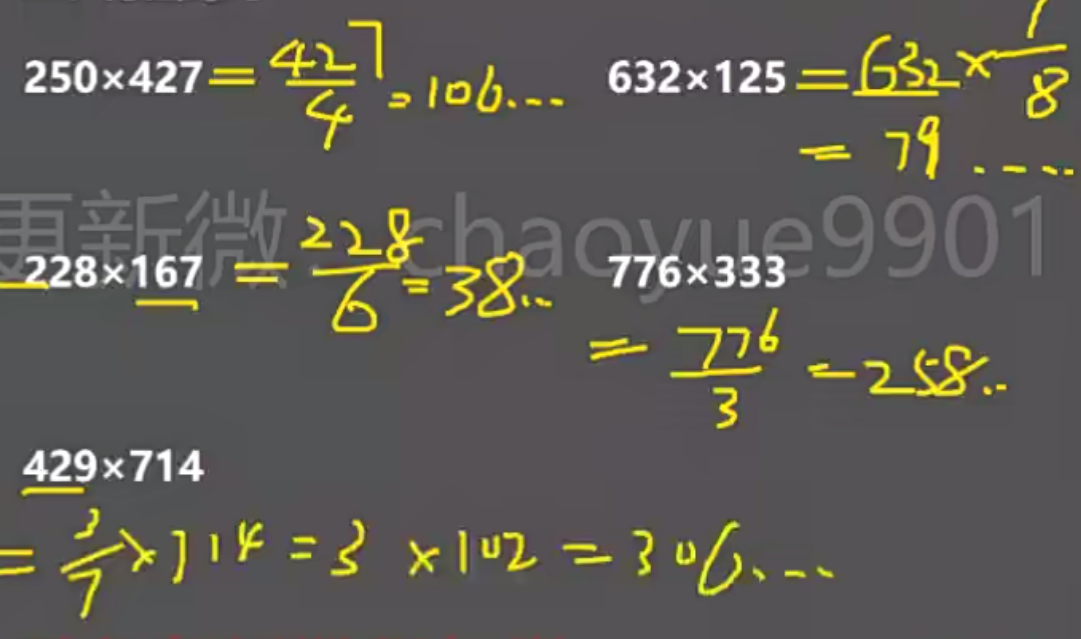 250×427 = 427/4 = 106... 632×125 = 632 × 1/8
= 79 .....
更新微: chaoyue9901
228×167 = 228/6 = 38... 776×333
= 776/3 = 258..
429×714
= 3/7 × 714 = 3 × 102 = 306....